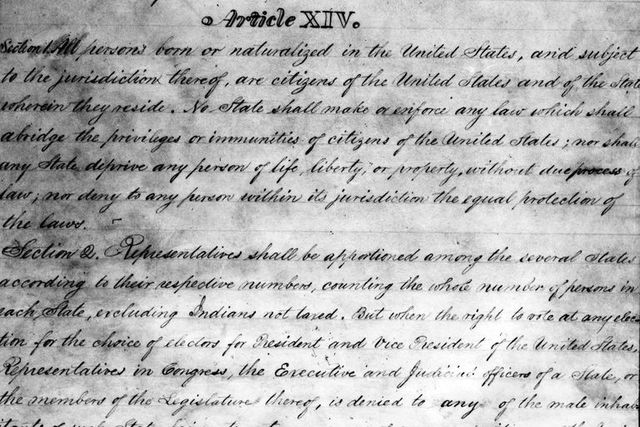 Article XIV.
Section 1. All persons born or naturalized in the United States, and subject
to the jurisdiction thereof, are citizens of the United States and of the State
wherein they reside. No State shall make or enforce any law which shall
abridge the privileges or immunities of citizens of the United States; nor shall
any State deprive any person of life, liberty, or property, without due process of
law; nor deny to any person within its jurisdiction the equal protection of
the laws.
Section 2. Representatives shall be apportioned among the several States
according to their respective numbers, counting the whole number of persons in
each State, excluding Indians not taxed. But when the right to vote at any elec
tion for the choice of electors for President and Vice President of the United States,
Representatives in Congress, the Executive and Judicial officers of a State, or
the members of the Legislature thereof, is denied to any of the male inhab